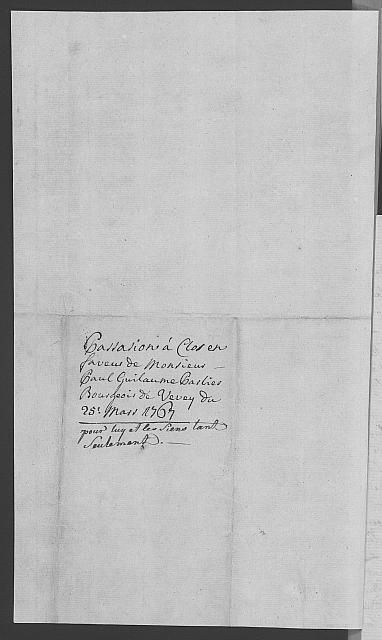 Passation à Clos en
faveur de Monsieur
Paul Guilaume
Bourgeois de Vevey du
25e Mars 1767
pour luy et les Siens tant
Seulement.